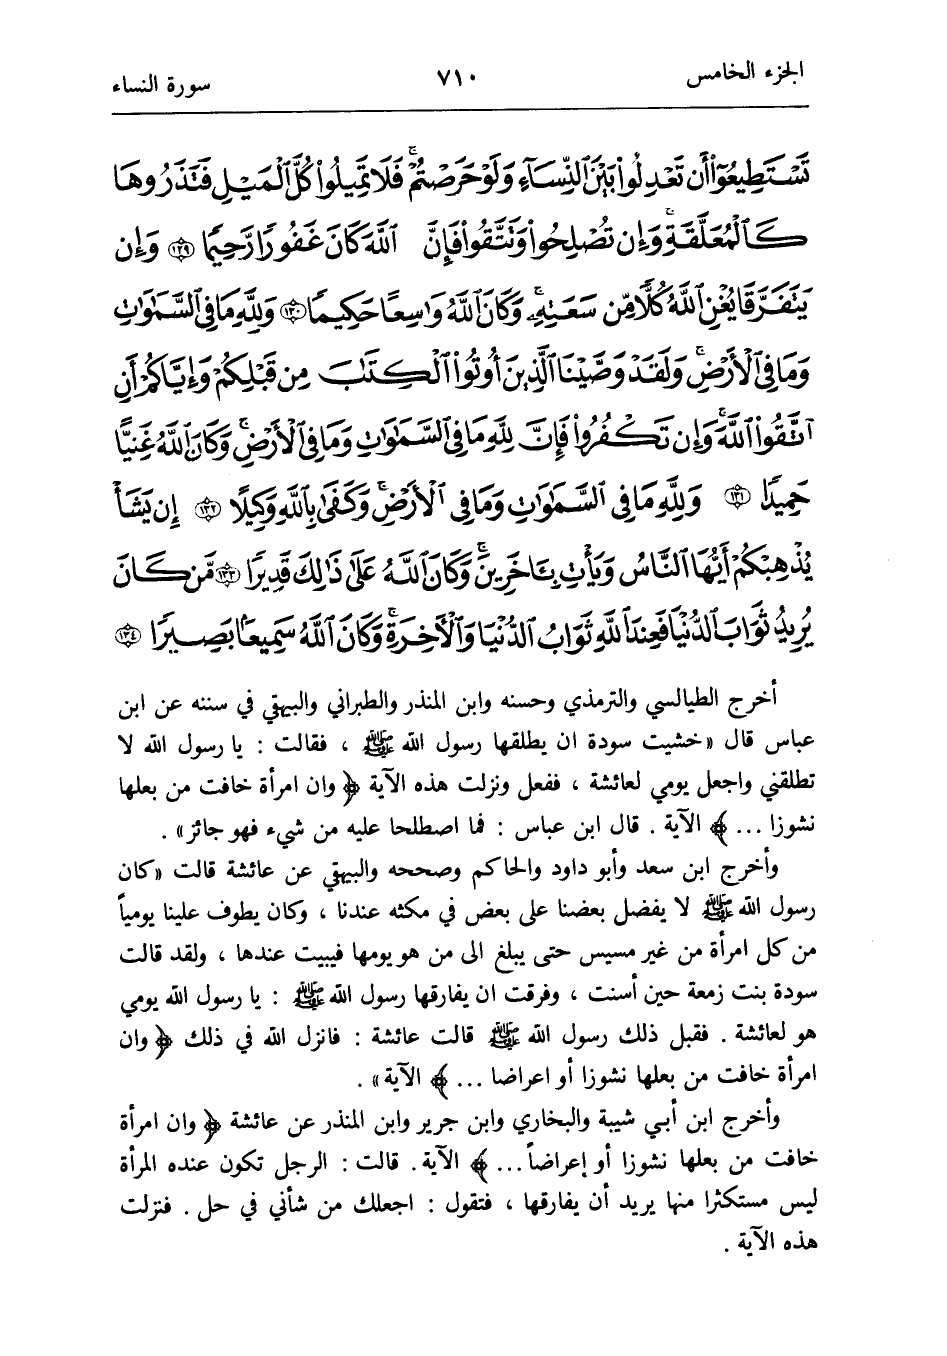 الجزء الخامس
٧١٠
سورة النساء
تَسْتَطِيعُوٓا۟ أَن تَعْدِلُوا۟ بَيْنَ ٱلنِّسَآءِ وَلَوْ حَرَصْتُمْ ۖ فَلَا تَمِيلُوا۟ كُلَّ ٱلْمَيْلِ فَتَذَرُوهَا
كَٱلْمُعَلَّقَةِ ۚ وَإِن تُصْلِحُوا۟ وَتَتَّقُوا۟ فَإِنَّ ٱللَّهَ كَانَ غَفُورًا رَّحِيمًا ﴿١٢٩﴾ وَإِن
يَتَفَرَّقَا يُغْنِ ٱللَّهُ كُلًّا مِّن سَعَتِهِۦ ۚ وَكَانَ ٱللَّهُ وَٰسِعًا حَكِيمًا ﴿١٣٠﴾ وَلِلَّهِ مَا فِى ٱلسَّمَٰوَٰتِ
وَمَا فِى ٱلْأَرْضِ ۗ وَلَقَدْ وَصَّيْنَا ٱلَّذِينَ أُوتُوا۟ ٱلْكِتَٰبَ مِن قَبْلِكُمْ وَإِيَّاكُمْ أَنِ
ٱتَّقُوا۟ ٱللَّهَ ۚ وَإِن تَكْفُرُوا۟ فَإِنَّ لِلَّهِ مَا فِى ٱلسَّمَٰوَٰتِ وَمَا فِى ٱلْأَرْضِ ۚ وَكَانَ ٱللَّهُ غَنِيًّا
حَمِيدًا ﴿١٣١﴾ وَلِلَّهِ مَا فِى ٱلسَّمَٰوَٰتِ وَمَا فِى ٱلْأَرْضِ ۚ وَكَفَىٰ بِٱللَّهِ وَكِيلًا ﴿١٣٢﴾ إِن يَشَأْ
يُذْهِبْكُمْ أَيُّهَا ٱلنَّاسُ وَيَأْتِ بِـَٔاخَرِينَ ۚ وَكَانَ ٱللَّهُ عَلَىٰ ذَٰلِكَ قَدِيرًا ﴿١٣٣﴾ مَّن كَانَ
يُرِيدُ ثَوَابَ ٱلدُّنْيَا فَعِندَ ٱللَّهِ ثَوَابُ ٱلدُّنْيَا وَٱلْآخِرَةِ ۚ وَكَانَ ٱللَّهُ سَمِيعًۢا بَصِيرًا ﴿١٣٤﴾
أخرج الطيالسي والترمذي وحسنه وابن المنذر والطبراني والبيهقي في سننه عن ابن
عباس قال «خشيت سودة ان يطلقها رسول الله ﷺ ، فقالت : يا رسول الله لا
تطلقني واجعل يومي لعائشة ، ففعل ونزلت هذه الآية ﴿ وان امرأة خافت من بعلها
نشوزا ... ﴾ الآية . قال ابن عباس : فما اصطلحا عليه من شيء فهو جائز» .
وأخرج ابن سعد وأبو داود والحاكم وصححه والبيهقي عن عائشة قالت «كان
رسول الله ﷺ لا يفضل بعضنا على بعض في مكثه عندنا ، وكان يطوف علينا يومياً
من كل امرأة من غير مسيس حتى يبلغ الى من هو يومها فيبيت عندها ، ولقد قالت
سودة بنت زمعة حين أسنت ، وفرقت ان يفارقها رسول الله ﷺ : يا رسول الله يومي
هو لعائشة . فقبل ذلك رسول الله ﷺ قالت عائشة : فانزل الله في ذلك ﴿ وان
امرأة خافت من بعلها نشوزا أو اعراضا ... ﴾ الآية» .
وأخرج ابن أبي شيبة والبخاري وابن جرير وابن المنذر عن عائشة ﴿ وان امرأة
خافت من بعلها نشوزا أو إعراضاً ... ﴾ الآية . قالت : الرجل تكون عنده المرأة
ليس مستكثرا منها يريد أن يفارقها ، فتقول : اجعلك من شأني في حل . فنزلت
هذه الآية .